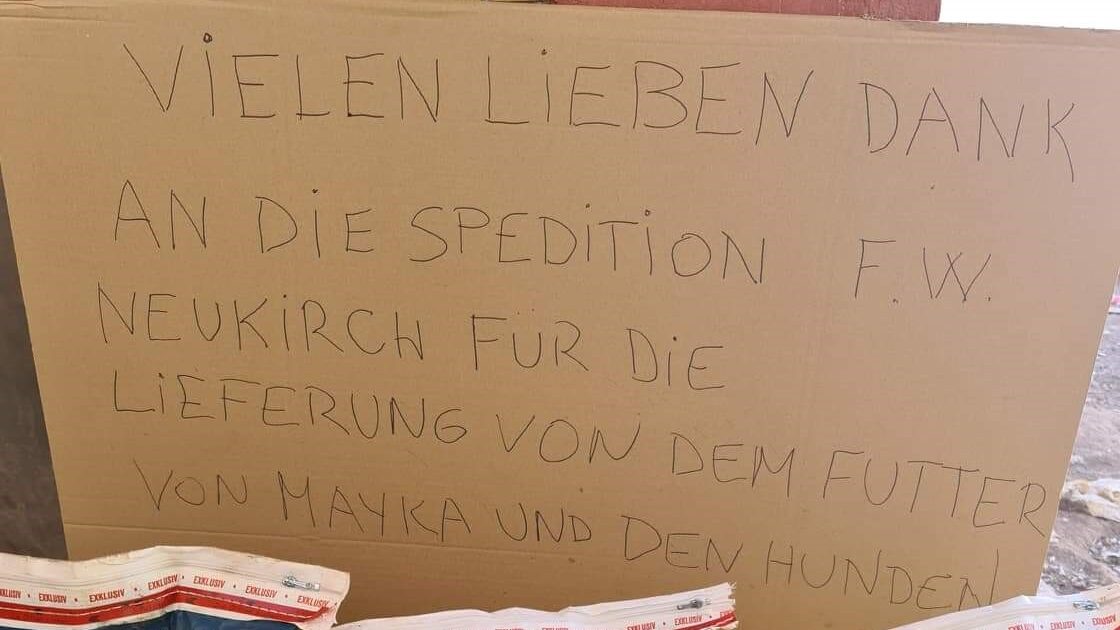 ViELEN LiEBEN DANK
AN DiE SPEDiTiON F.W.
NEUKiRCH FÜR DiE
LiEFERUNG VON DEM FUTTER
VON MAYKA UND DEN HUNDEN
EXKLUSIV • EXKLUSIV • EXKLUSIV • EXKLUSIV • EXKLUSIV • EXKLUSIV
EXKLUSIV EXKLUSIV
EXKLUSIV